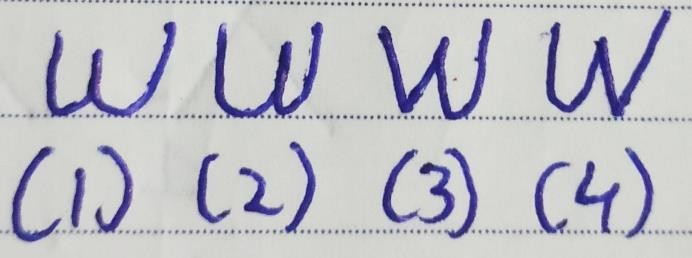 W W W W
(1) (2) (3) (4)